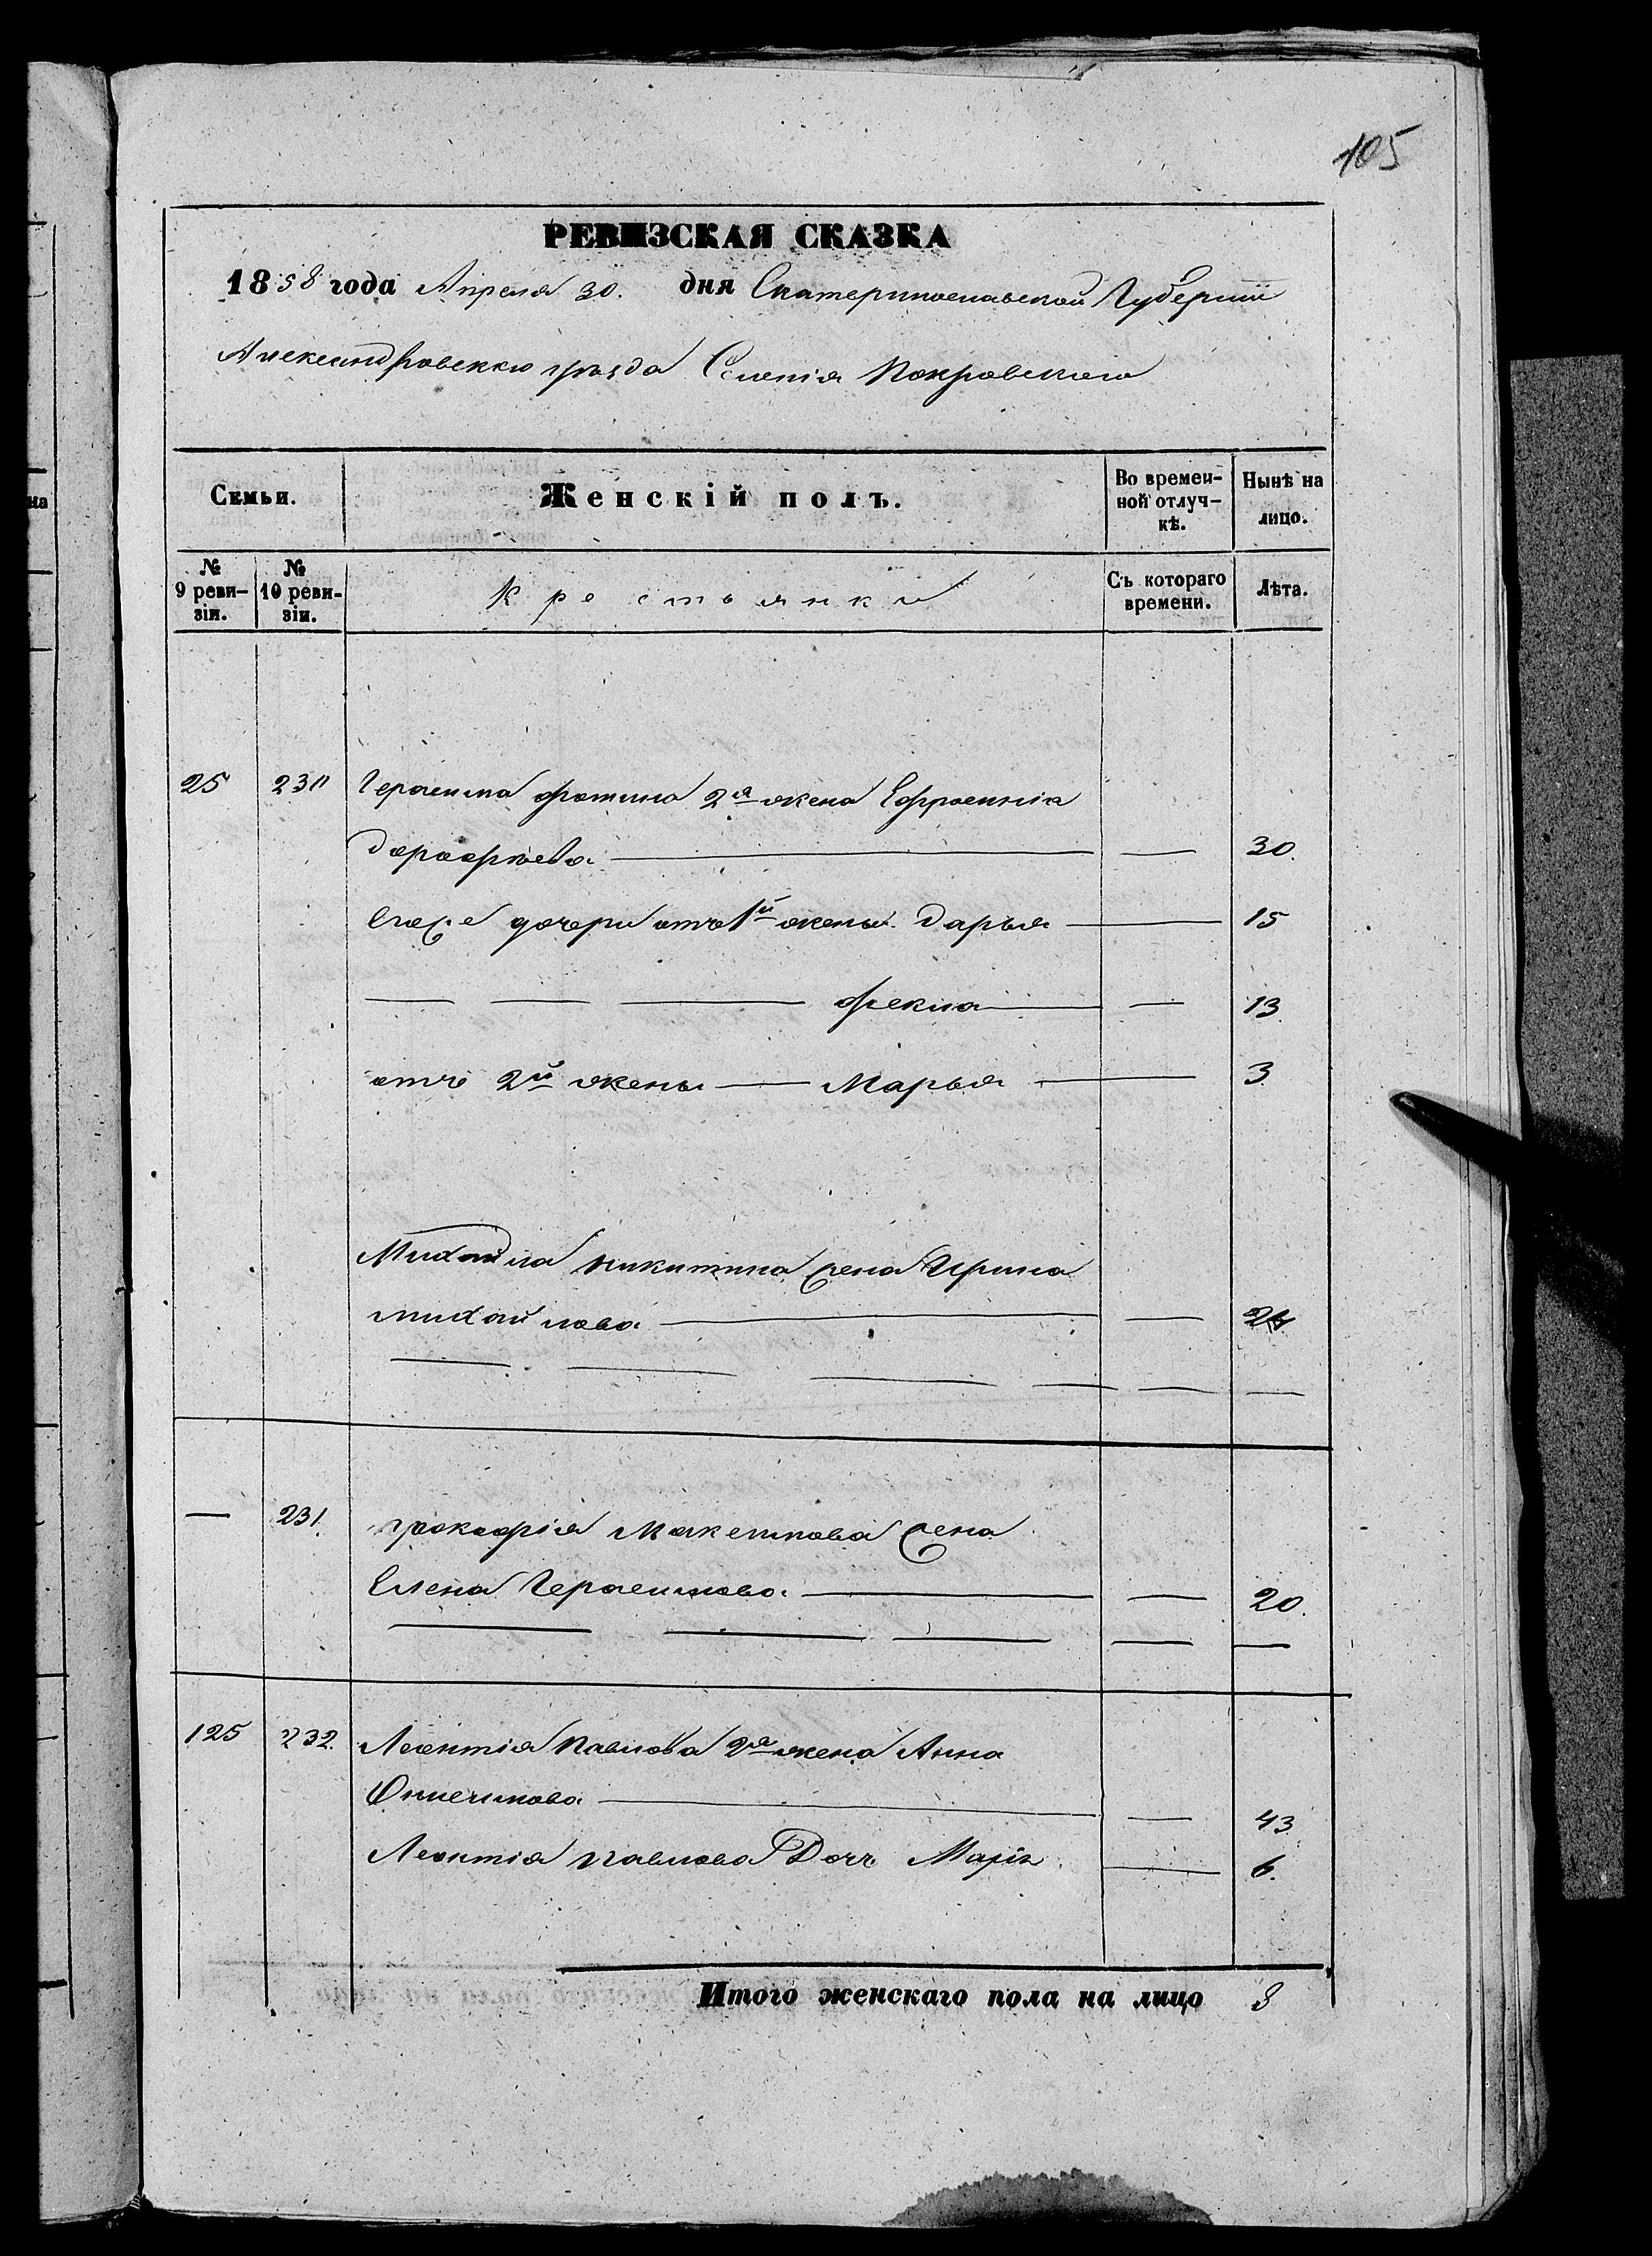 105
РЕВИЗСКАЯ СКАЗКА
1858 года Апреля 30. дня Екатеринославской Губернии
Александровскаго уѣзда Селенія Покровскаго
Семьи. Женскій полъ. Во времен- Нынѣ на
ной отлуч- лицо.
кѣ.
№ № Крестьянки Съ котораго Лѣта.
9 реви- 10 реви- времени.
зіи. зіи.
25 230 Герасима Фотина 2я жена Ефросинія
Дорофѣева — 30.
Его же дочери отъ 1й жены Дарья — 15
— — — Фекла — 13
отъ 2й жены — Марья — 3
Михайла Никитина жена Ирина
Михайлова — 24
— 231. Прокофія Максимова жена
Елена Герасимова — 20.
125 232. Леонтія Павлова 2я жена Анна
Онисимова — 43
Леонтія Павлова Дочь Марія — 6.
Итого женскаго пола на лицо 8